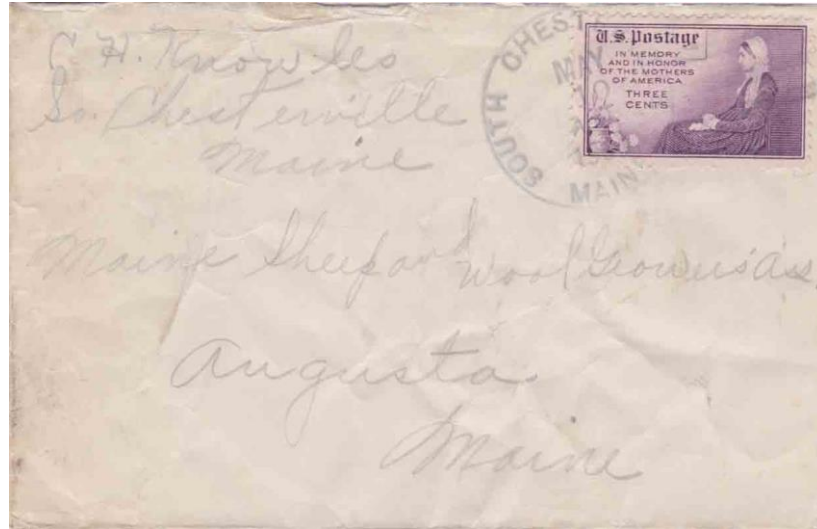 C H. Knowles
So. Chesterville
Maine
SOUTH CHEST
MAY
MAIN
U.S. Postage
IN MEMORY
AND IN HONOR
OF THE MOTHERS
OF AMERICA
THREE
CENTS
Maine Sheep and Wool Growers Ass
Augusta
Maine